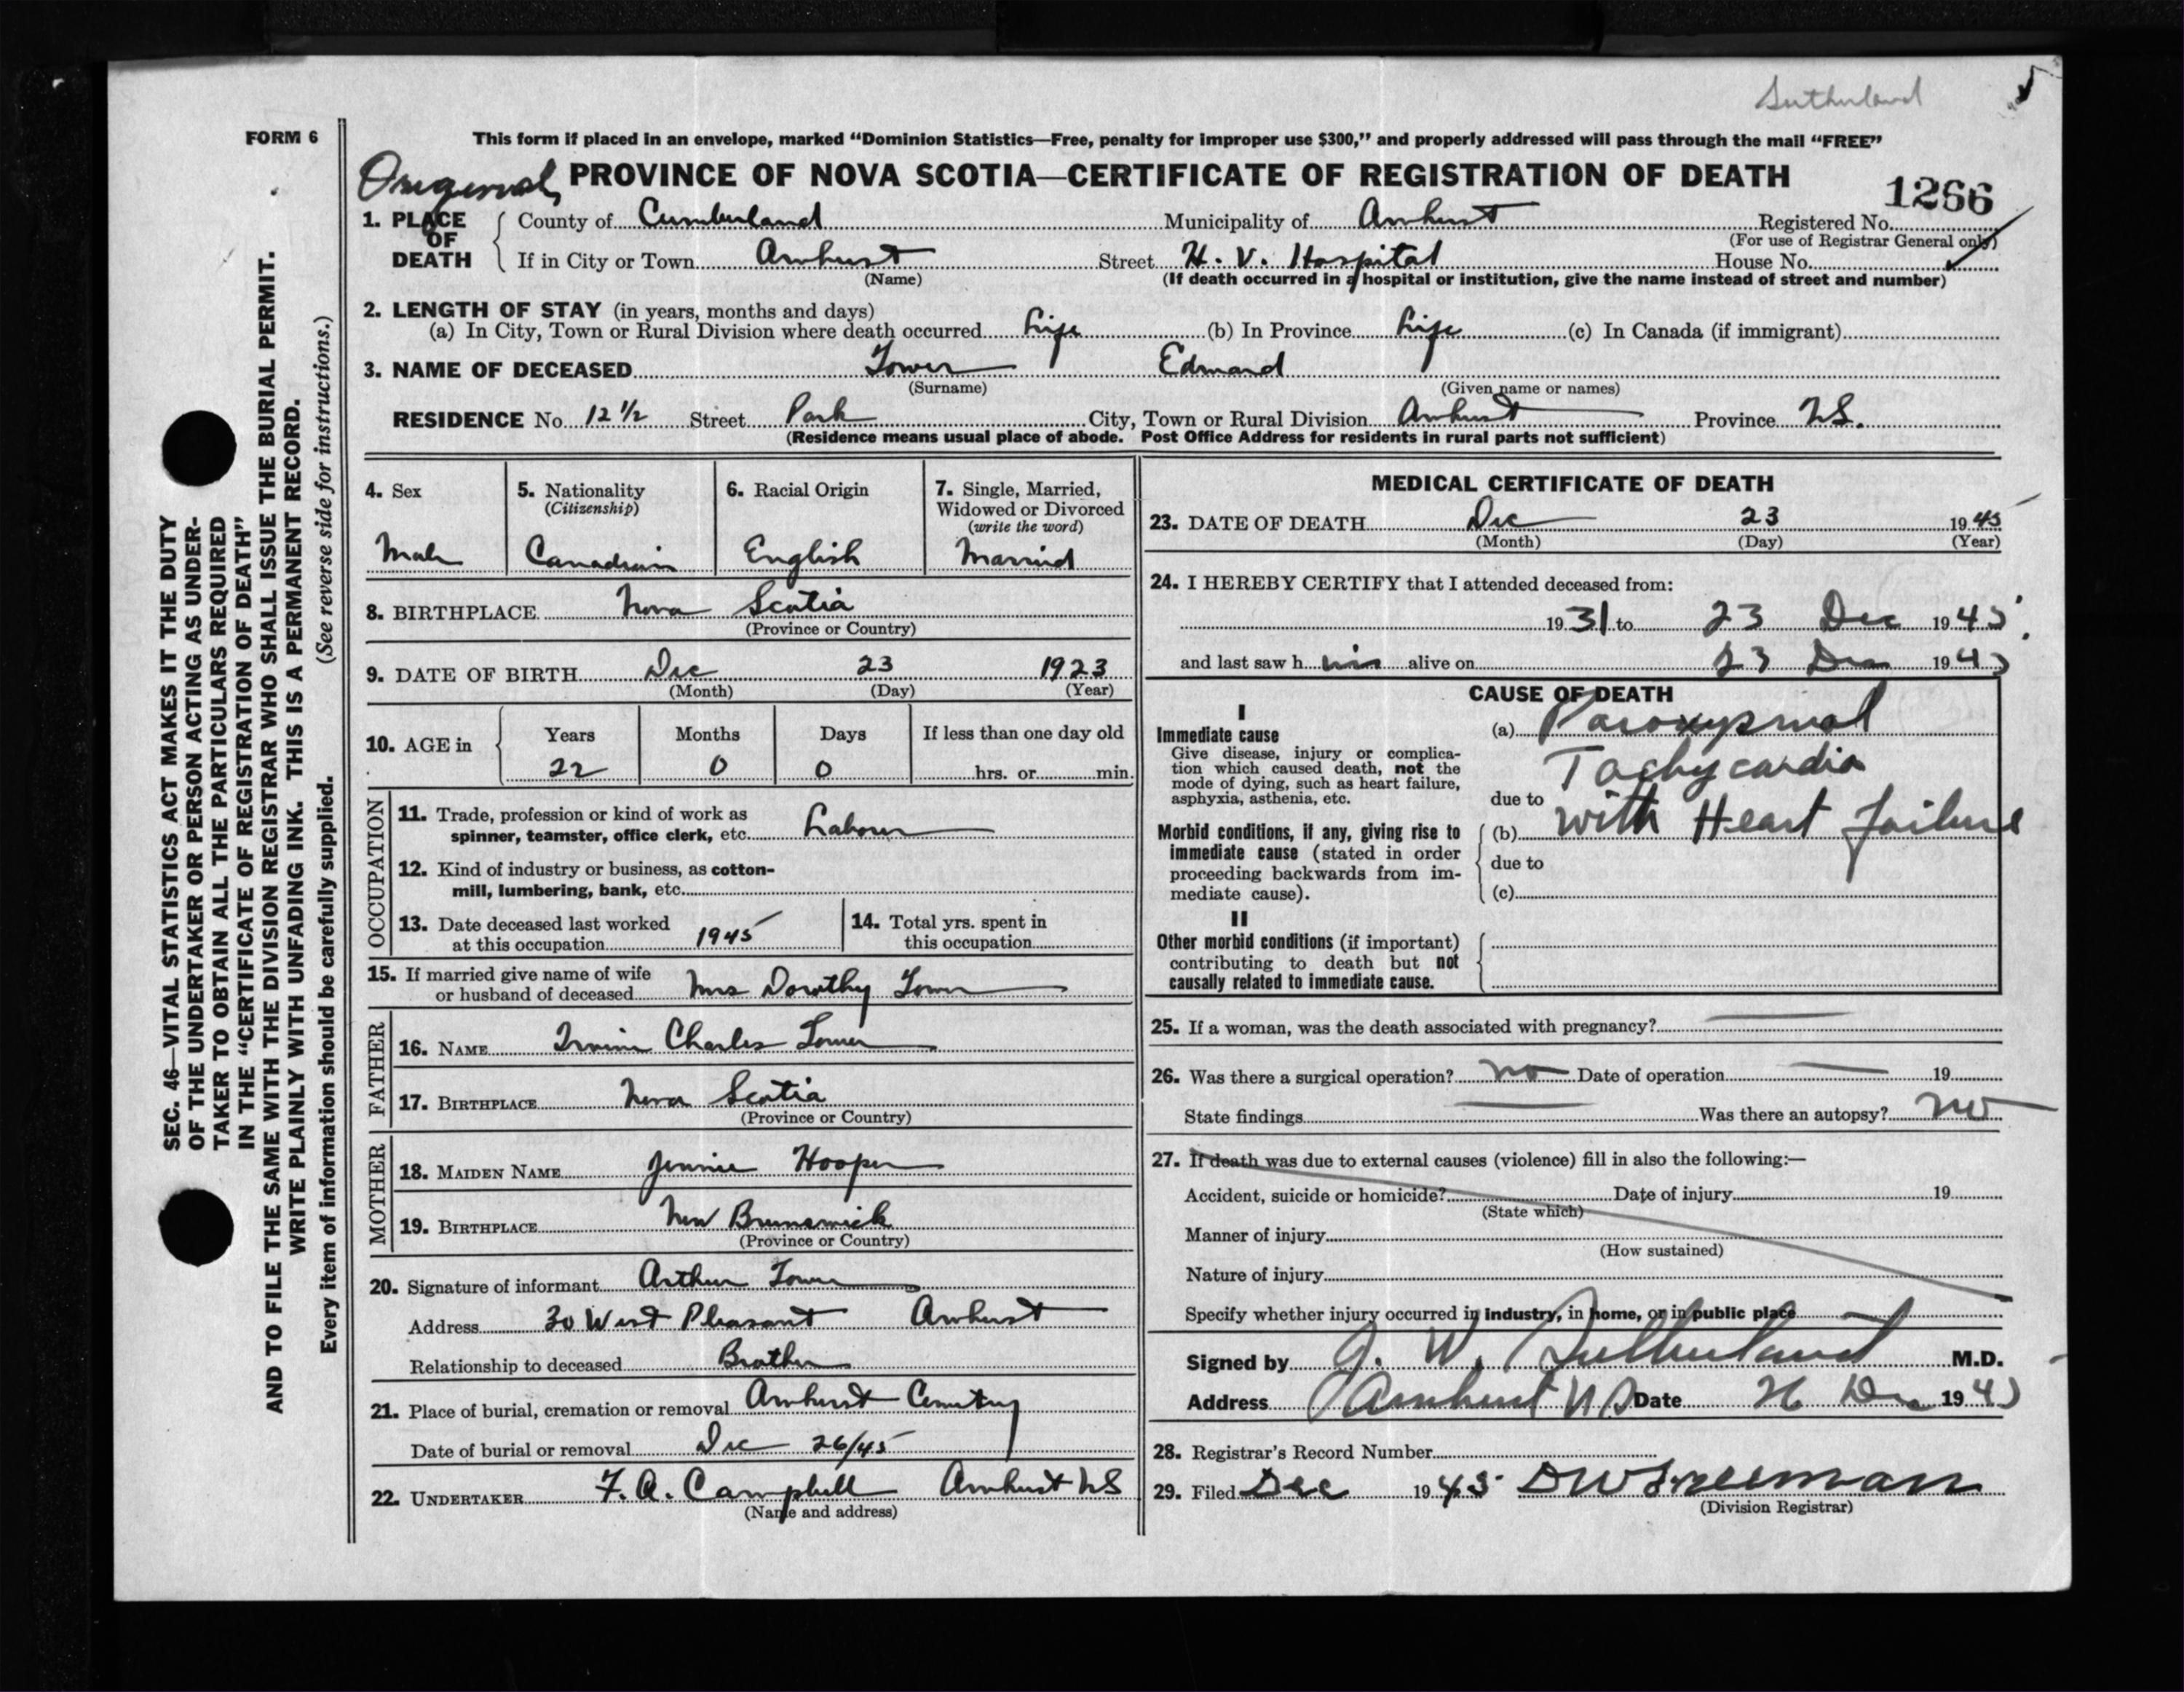 Sutherland
FORM 6
This form if placed in an envelope, marked “Dominion Statistics—Free, penalty for improper use $300,” and properly addressed will pass through the mail “FREE”
Original PROVINCE OF NOVA SCOTIA—CERTIFICATE OF REGISTRATION OF DEATH
1266
1. PLACE OF DEATH
County of Cumberland Municipality of Amherst Registered No.
(For use of Registrar General only)
If in City or Town Amherst Street H. V. Hospital House No.
(Name) (If death occurred in a hospital or institution, give the name instead of street and number)
2. LENGTH OF STAY (in years, months and days)
(a) In City, Town or Rural Division where death occurred Life (b) In Province Life (c) In Canada (if immigrant)
3. NAME OF DECEASED Tower Edmond
(Surname) (Given name or names)
RESIDENCE No. 12 ½ Street Park City, Town or Rural Division Amherst Province N.S.
(Residence means usual place of abode. Post Office Address for residents in rural parts not sufficient)
4. Sex
Male
5. Nationality
(Citizenship)
Canadian
6. Racial Origin
English
7. Single, Married,
Widowed or Divorced
(write the word)
Married
8. BIRTHPLACE Nova Scotia
(Province or Country)
9. DATE OF BIRTH Dec 23 1923
(Month) (Day) (Year)
10. AGE in
Years Months Days If less than one day old
22 0 0 hrs. or min.
OCCUPATION
11. Trade, profession or kind of work as
spinner, teamster, office clerk, etc. Labour
12. Kind of industry or business, as cotton-
mill, lumbering, bank, etc.
13. Date deceased last worked
at this occupation 1945
14. Total yrs. spent in
this occupation
15. If married give name of wife
or husband of deceased Mrs Dorothy Tower
FATHER
16. NAME Irvine Charles Tower
17. BIRTHPLACE Nova Scotia
(Province or Country)
MOTHER
18. MAIDEN NAME Jennie Hooper
19. BIRTHPLACE New Brunswick
(Province or Country)
20. Signature of informant Arthur Tower
Address 30 West Pleasant Amherst
Relationship to deceased Brother
21. Place of burial, cremation or removal Amherst Cemetery
Date of burial or removal Dec 26/45
22. UNDERTAKER F. A. Campbell Amherst NS
(Name and address)
MEDICAL CERTIFICATE OF DEATH
23. DATE OF DEATH Dec 23 1945
(Month) (Day) (Year)
24. I HEREBY CERTIFY that I attended deceased from:
1931 to 23 Dec 1945
and last saw him alive on 23 Dec 1945
CAUSE OF DEATH
I
Immediate cause
Give disease, injury or complica-
tion which caused death, not the
mode of dying, such as heart failure,
asphyxia, asthenia, etc.
(a) Paroxysmal
Tachycardia
due to
Morbid conditions, if any, giving rise to
immediate cause (stated in order
proceeding backwards from im-
mediate cause).
(b) with Heart failure
due to
(c)
II
Other morbid conditions (if important)
contributing to death but not
causally related to immediate cause.
25. If a woman, was the death associated with pregnancy?
26. Was there a surgical operation? no Date of operation 19
State findings Was there an autopsy? no
27. If death was due to external causes (violence) fill in also the following:—
Accident, suicide or homicide? Date of injury 19
(State which)
Manner of injury
(How sustained)
Nature of injury
Specify whether injury occurred in industry, in home, or in public place
Signed by J. W. Sutherland M.D.
Address Amherst NS Date 26 Dec 1945
28. Registrar's Record Number
29. Filed Dec 1945 DW Freeman
(Division Registrar)
SEC. 46—VITAL STATISTICS ACT MAKES IT THE DUTY
OF THE UNDERTAKER OR PERSON ACTING AS UNDER-
TAKER TO OBTAIN ALL THE PARTICULARS REQUIRED
IN THE “CERTIFICATE OF REGISTRATION OF DEATH”
AND TO FILE THE SAME WITH THE DIVISION REGISTRAR WHO SHALL ISSUE THE BURIAL PERMIT.
WRITE PLAINLY WITH UNFADING INK. THIS IS A PERMANENT RECORD.
Every item of information should be carefully supplied. (See reverse side for instructions.)